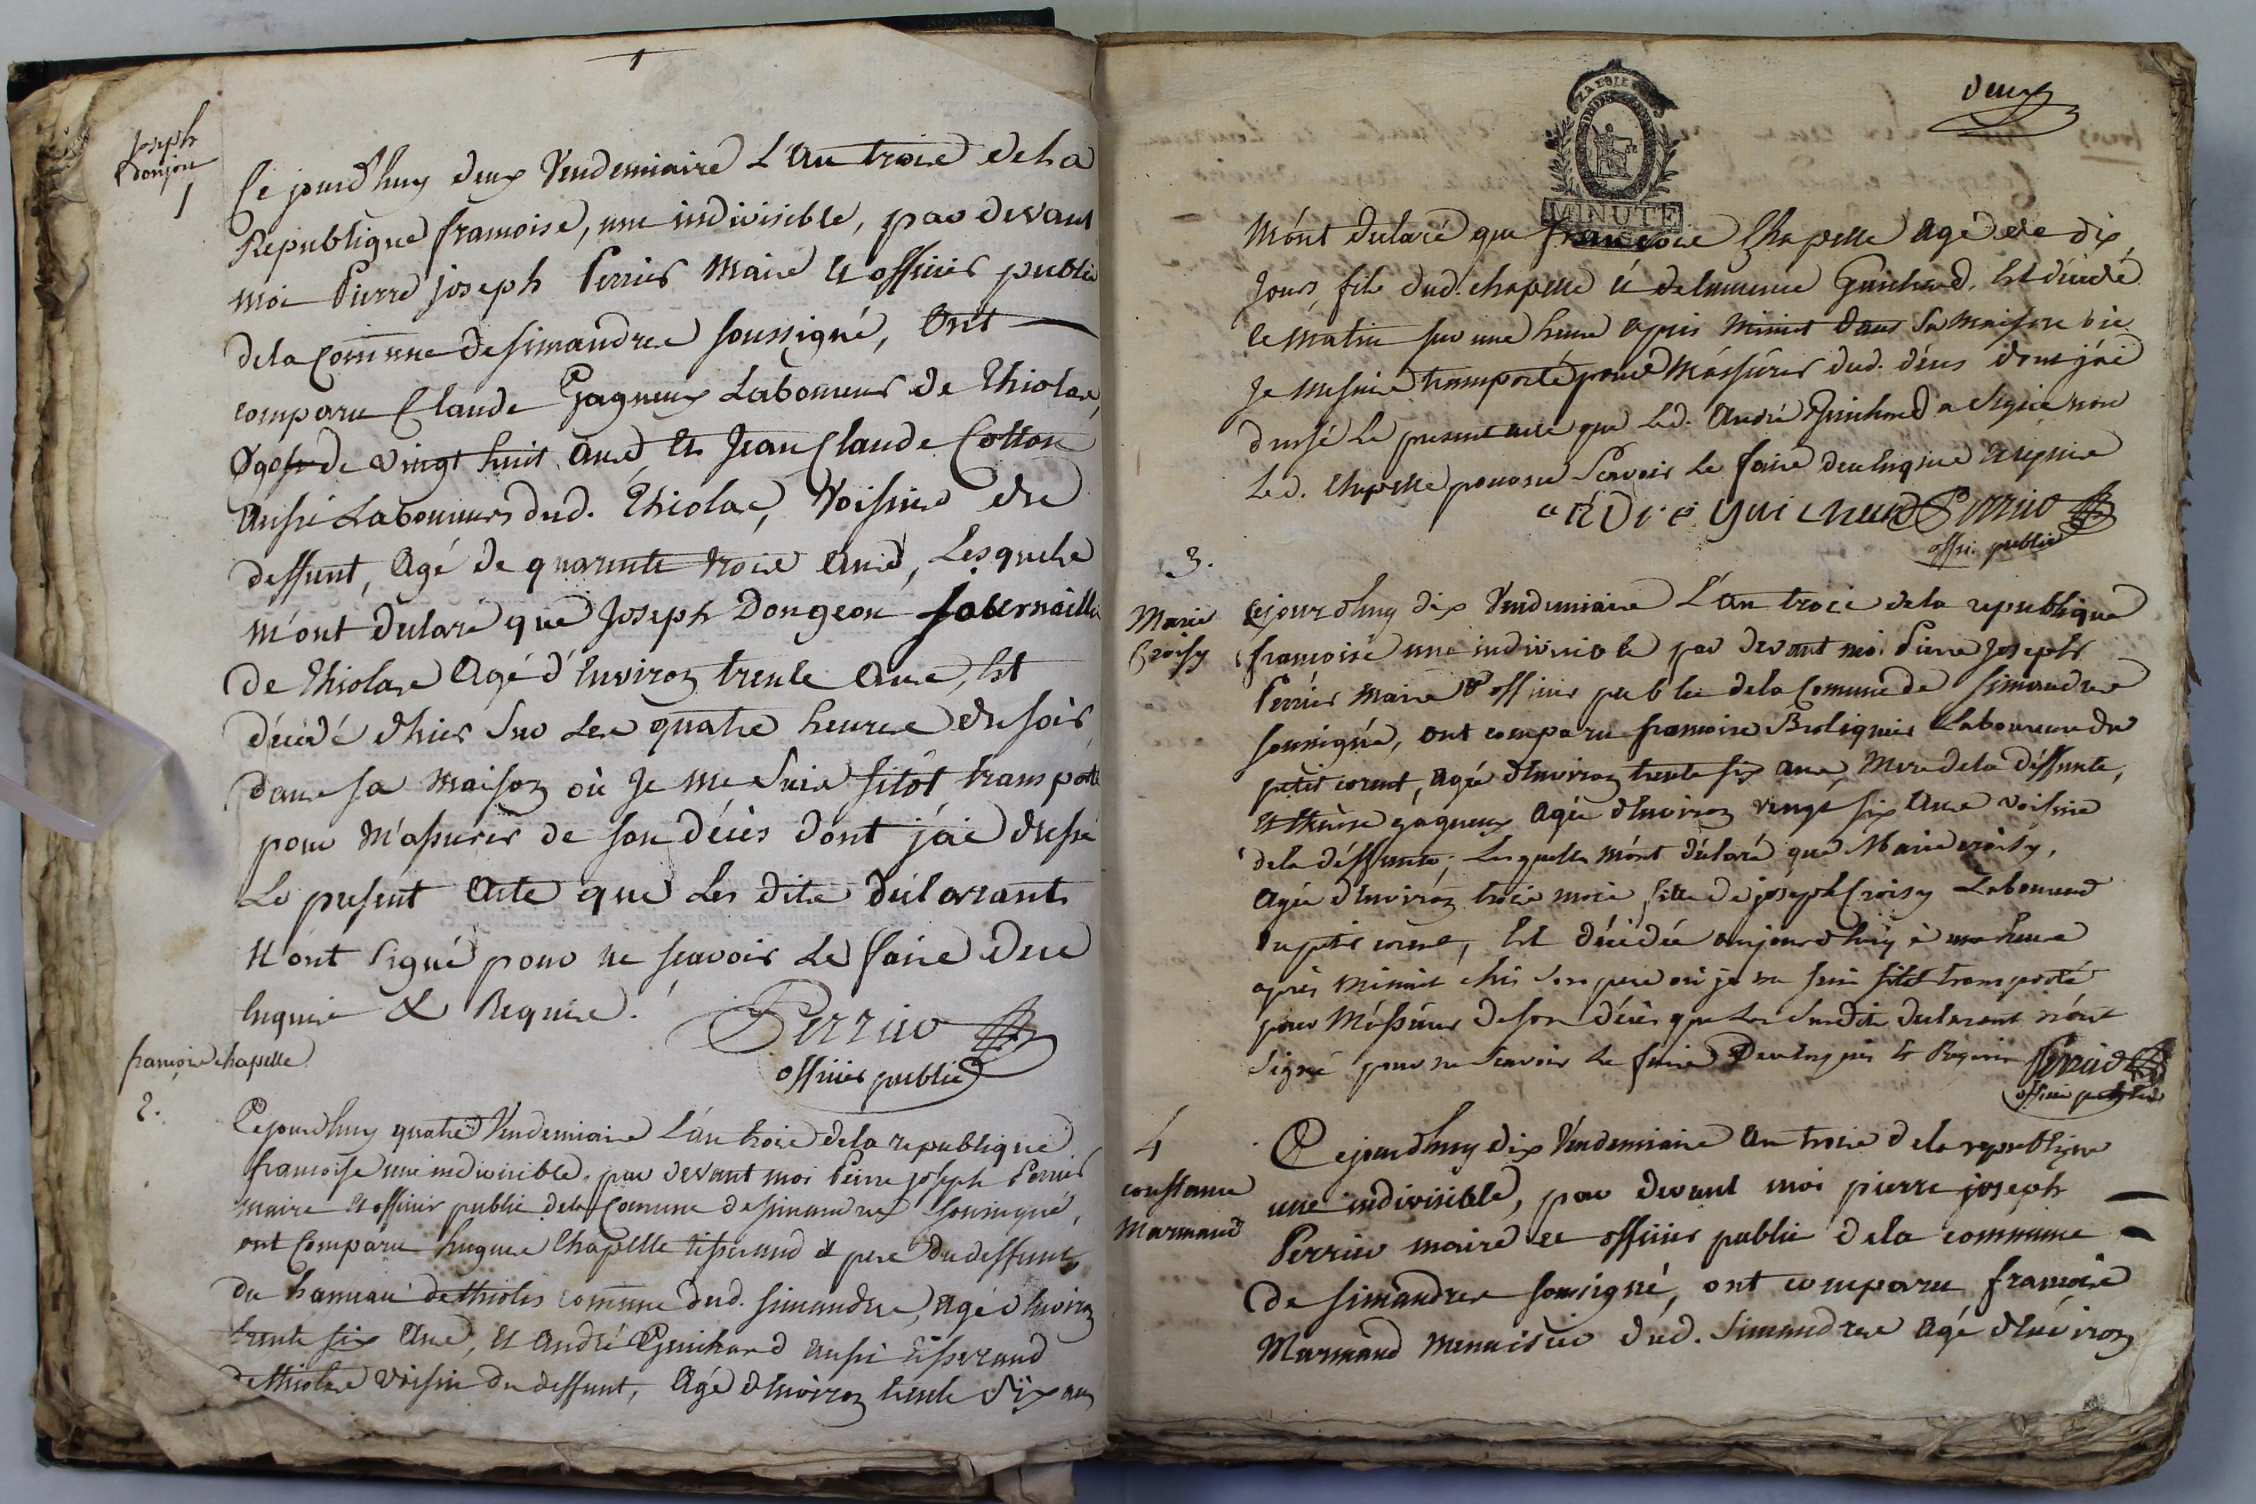 1
Joseph
donjon
1
Ce jourd'huy deux Vendemiaire L'an trois de la
Republique francoise, une indivisible, par devant
moi Pierre joseph Perrier Maire et officier public
de la Commune de simandres soussigné, Ont
comparu Claude Gagneux Laboureur de Thiolas,
Agé de vingt huit ans et Jean Claude Cotton
aussi Laboureurs dud. Thiolas, Voisins du
deffunt, Agé de quarente trois ans, Lesquels
m'ont declaré que Joseph Dongeon
de Thiolas Agé d'Environ trente Ans, Est
décédé d'hier Sur Les quatre heures du soir
dans sa Maison où Je me Suis sitôt transporté
pour M'assurer de son décès dont j'ai dressé
Le present Acte que Les dits déclarants
N'ont signé pour ne scavoir Le faire de ce
Enquis & Requis.
Perrier
officier public
francois chapelle
2.
Cejourd'huy quatre Vendemiaire L'an trois de la republique
francoise une indivisible, par devant moi Pierre joseph Perrier
maire et officier public de la Commune de simandres soussigné,
ont Comparu hugues Chapelle tisserand et pere du deffunt,
du hameau de thiolas commune dud. simandres, agé d'Environ
trente six Ans, et André Guichard aussi tisserand
de thiolas voisin du deffunt, Agé d'Environ trente Six ans
deux
MINUTE
M'ont declaré que francois Chapelle Agé de dix
Jours, fils dud. chapelle et de Guichard, Est décédé
ce matin sur une heure après Minuit dans sa Maison où
Je me suis transporté pour M'assurer dud. décès dont j'ai
dressé Le present acte que Led. André Guichard a signé non
Led. Chapelle pour ne Scavoir Le faire de ce Enquis et requis
andré guichard Perrier
offi. public
3.
Marie
Croisy
Cejourd'huy dix Vendemiaire L'an trois de la republique
francoise une indivisible par devant moi Pierre Joseph
Perrier Maire & officier public de la Commune de simandres
soussigné, ont comparu francoise Laboureur du
petit corent, agée d'Environ trente six ans, Mere de la deffunte,
et gagneux Agée d'Environ vingt six Ans voisine
de la deffunte, Lesquelles m'ont déclaré que Marie croisy,
Agée d'Environ trois mois, fille de joseph Croisy Laboureur
du petit corent, Est décédée aujourd'huy à une heure
après Minuit chés son pere où je me suis sitot transporté
pour M'assurer de son décès que Les Susdites declarant n'ont
signé pour ne scavoir Le faire De ce Enquis et Requis Perrier
officier public
4
constance
Marmand
Cejourd'huy dix Vendemiaire An trois de la republique
une indivisible, par devant moi pierre joseph
Perrier maire et officier public de la commune
de simandres soussigné, ont comparu francois
Marmand menuisier dud. Simandres Agé d'Environ